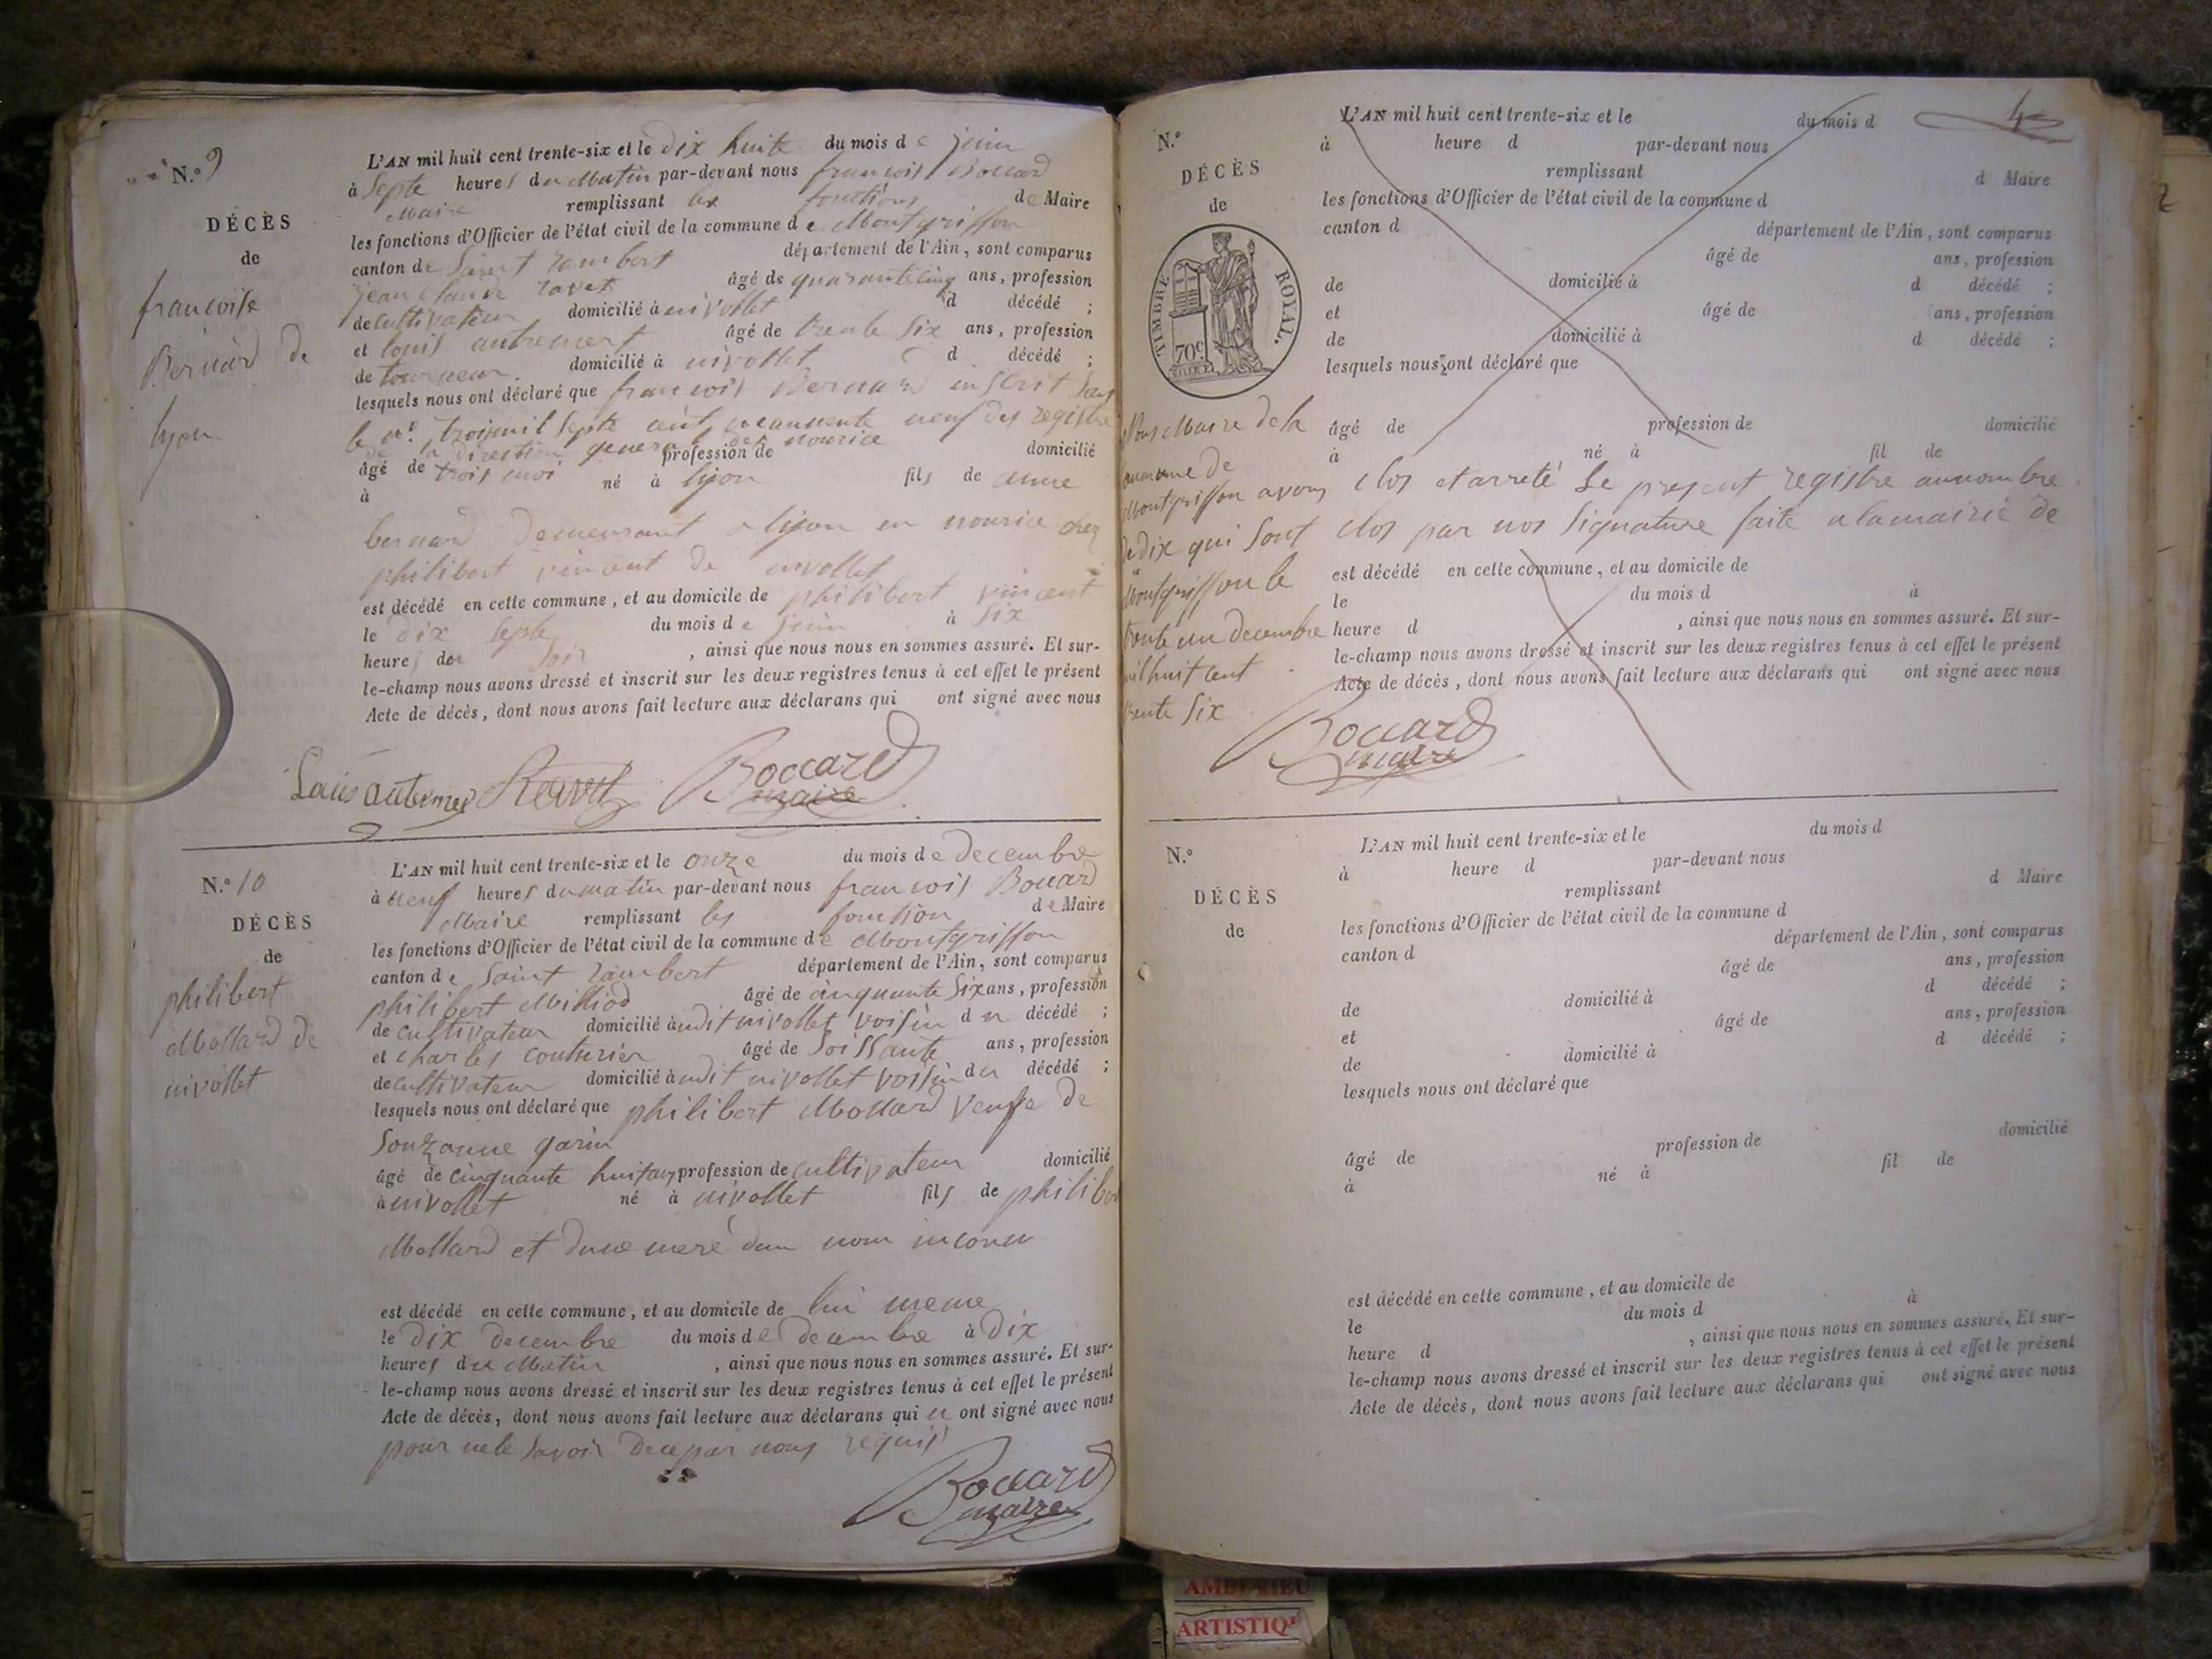 N.° 9
DÉCÈS
de
francoise
Bernard de
lyon
L'AN mil huit cent trente-six et le dix huite du mois de juin
à Septe heures du Matin par-devant nous francois Boccard
Maire remplissant les fonctions de Maire
les fonctions d'Officier de l'état civil de la commune de Montgriffon
canton de Saint rambert département de l'Ain, sont comparus
jean claude ravet âgé de quarante cinq ans, profession
de cultivateur domicilié à nivollet d décédé ;
et louis antremert âgé de trente Six ans, profession
de tourneur domicilié à nivollet d décédé ;
lesquels nous ont déclaré que francois Bernard inscrit Sous
le n.° troismil Septe cent neuf des registre
de la direction general des nourice
âgé de trois moi profession de domicilié
à né à lyon fils de anne
bernard demeurant a lyon en nourice chez
philibert vincent de nivollet
est décédé en cette commune, et au domicile de philibert vincent
le dix Septe du mois de juin à Six
heures du Soir , ainsi que nous nous en sommes assuré. Et sur-
le-champ nous avons dressé et inscrit sur les deux registres tenus à cet effet le présent
Acte de décès, dont nous avons fait lecture aux déclarans qui ont signé avec nous
Louis Ravet Boccard
maire
N.° 10
DÉCÈS
de
philibert
Mollard de
nivollet
L'AN mil huit cent trente-six et le onze du mois de decembre
à neuf heures du matin par-devant nous francois Boccard
Maire remplissant les fonction de Maire
les fonctions d'Officier de l'état civil de la commune de Montgriffon
canton de Saint rambert département de l'Ain, sont comparus
philibert Milliod âgé de cinquante Six ans, profession
de cultivateur domicilié audit nivollet voisin du décédé ;
et charles couturier âgé de Soissante ans, profession
de cultivateur domicilié audit nivollet voisin du décédé ;
lesquels nous ont déclaré que philibert Mollard veuf de
Souzanne garin
âgé de cinquante huit ans profession de cultivateur domicilié
à nivollet né à nivollet fils de philibert
Mollard et dune mere dun nom inconu
est décédé en cette commune, et au domicile de lui meme
le dix decembre du mois de decembre à dix
heures du Matin , ainsi que nous nous en sommes assuré. Et sur-
le-champ nous avons dressé et inscrit sur les deux registres tenus à cet effet le présent
Acte de décès, dont nous avons fait lecture aux déclarans qui n ont signé avec nous
pour ne le Savoir de ce par nous requis
Boccard
maire
4
N.°
DÉCÈS
de
TIMBRE ROYAL
70c
L'AN mil huit cent trente-six et le du mois d
à heure d par-devant nous
remplissant d Maire
les fonctions d'Officier de l'état civil de la commune d
canton d département de l'Ain, sont comparus
âgé de ans, profession
de domicilié à d décédé ;
et âgé de ans, profession
de domicilié à d décédé ;
lesquels nous ont déclaré que
âgé de profession de domicilié
à né à fil de
Nous Maire de la
commune de
Montgriffon avons clos et arreté Le present registre aunombre
de dix qui Sont clos par nos Signature faite a la mairie de
Montgriffon le
trente un decembre
mil huit cent
trente Six
est décédé en cette commune, et au domicile de
le du mois d à
heure d , ainsi que nous nous en sommes assuré. Et sur-
le-champ nous avons dressé et inscrit sur les deux registres tenus à cet effet le présent
Acte de décès, dont nous avons fait lecture aux déclarans qui ont signé avec nous
Boccard
maire
N.°
DÉCÈS
de
L'AN mil huit cent trente-six et le du mois d
à heure d par-devant nous
remplissant d Maire
les fonctions d'Officier de l'état civil de la commune d
canton d département de l'Ain, sont comparus
âgé de ans, profession
de domicilié à d décédé ;
et âgé de ans, profession
de domicilié à d décédé ;
lesquels nous ont déclaré que
âgé de profession de domicilié
à né à fil de
est décédé en cette commune, et au domicile de
le du mois d à
heure d , ainsi que nous nous en sommes assuré. Et sur-
le-champ nous avons dressé et inscrit sur les deux registres tenus à cet effet le présent
Acte de décès, dont nous avons fait lecture aux déclarans qui ont signé avec nous
AMBERIEU
ARTISTIQU